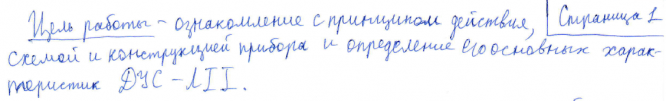 Цель работы - ознакомление с принципом действия,
Страница 1
схемой и конструкцией прибора и определение его основных харак-
теристик ДУС-ЛІІ.